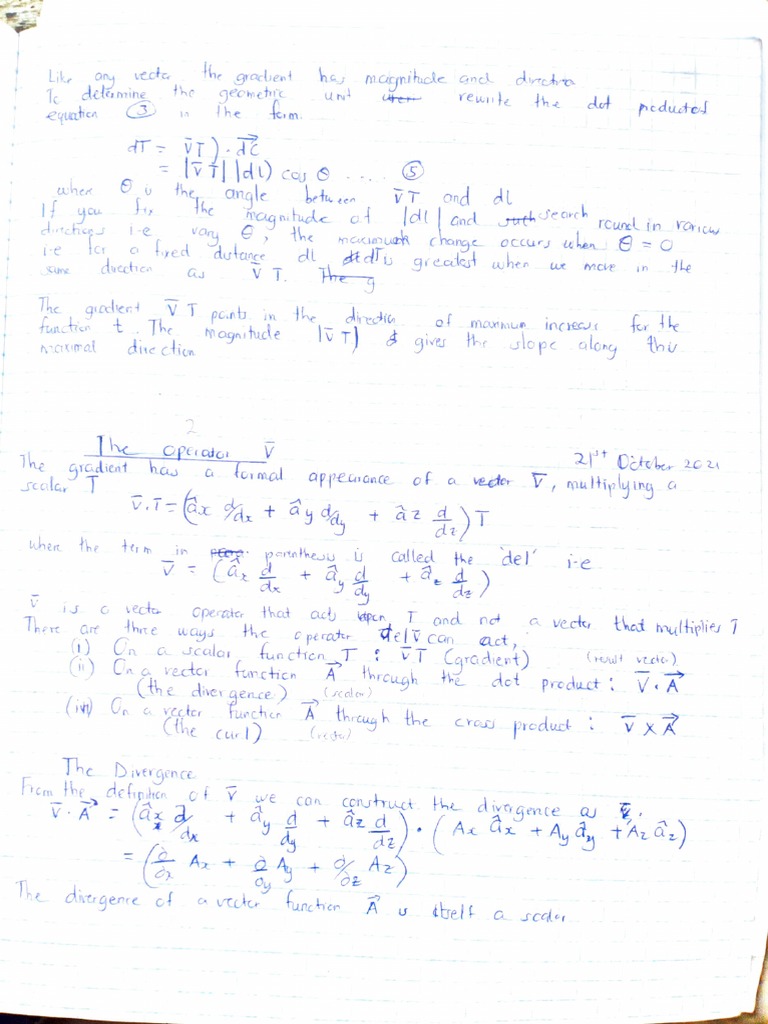 Like any vector the gradient has magnitude and direction
To determine the geometric unit rewrite the dot product of
equation ③ in the form.
dT = V̄T) · d⃗l
= |V̄T| |dl) cos θ .... ⑤
where θ is the angle between V̄T and dl
If you fix the magnitude of |dl| and such search round in various
directions i.e vary θ, the maximum change occurs when θ = 0
i.e for a fixed distance dl dT is greatest when we move in the
same direction as V̄T. The g
The gradient V̄T points in the direction of maximum increase for the
function t. The magnitude |V̄T| gives the slope along this
maximal direction
2
The operator V̄
21st October 2021
The gradient has a formal appearance of a vector V̄, multiplying a
scalar T
V̄.T = (âx d/dx + ây d/dy + âz d/dz) T
where the term in parenthesis is called the 'del' i-e
V̄ = (âx d/dx + ây d/dy + âz d/dz)
V̄ is a vector operator that acts upon T and not a vector that multiplies T
There are three ways the operator del V̄ can act,
(i) On a scalar function T : V̄T (gradient) (result vector)
(ii) On a vector function A⃗ through the dot product : V̄·A⃗
(the divergence) (scalar)
(iii) On a vector function A⃗ through the cross product : V̄ x A⃗
(the curl) (vector)
The Divergence
From the definition of V̄ we can construct the divergence as
V̄·A⃗ = (âx d/dx + ây d/dy + âz d/dz) · (Ax âx + Ay ây + Az âz)
= (∂/∂x Ax + ∂/∂y Ay + ∂/∂z Az)
The divergence of a vector function A⃗ is itself a scalar